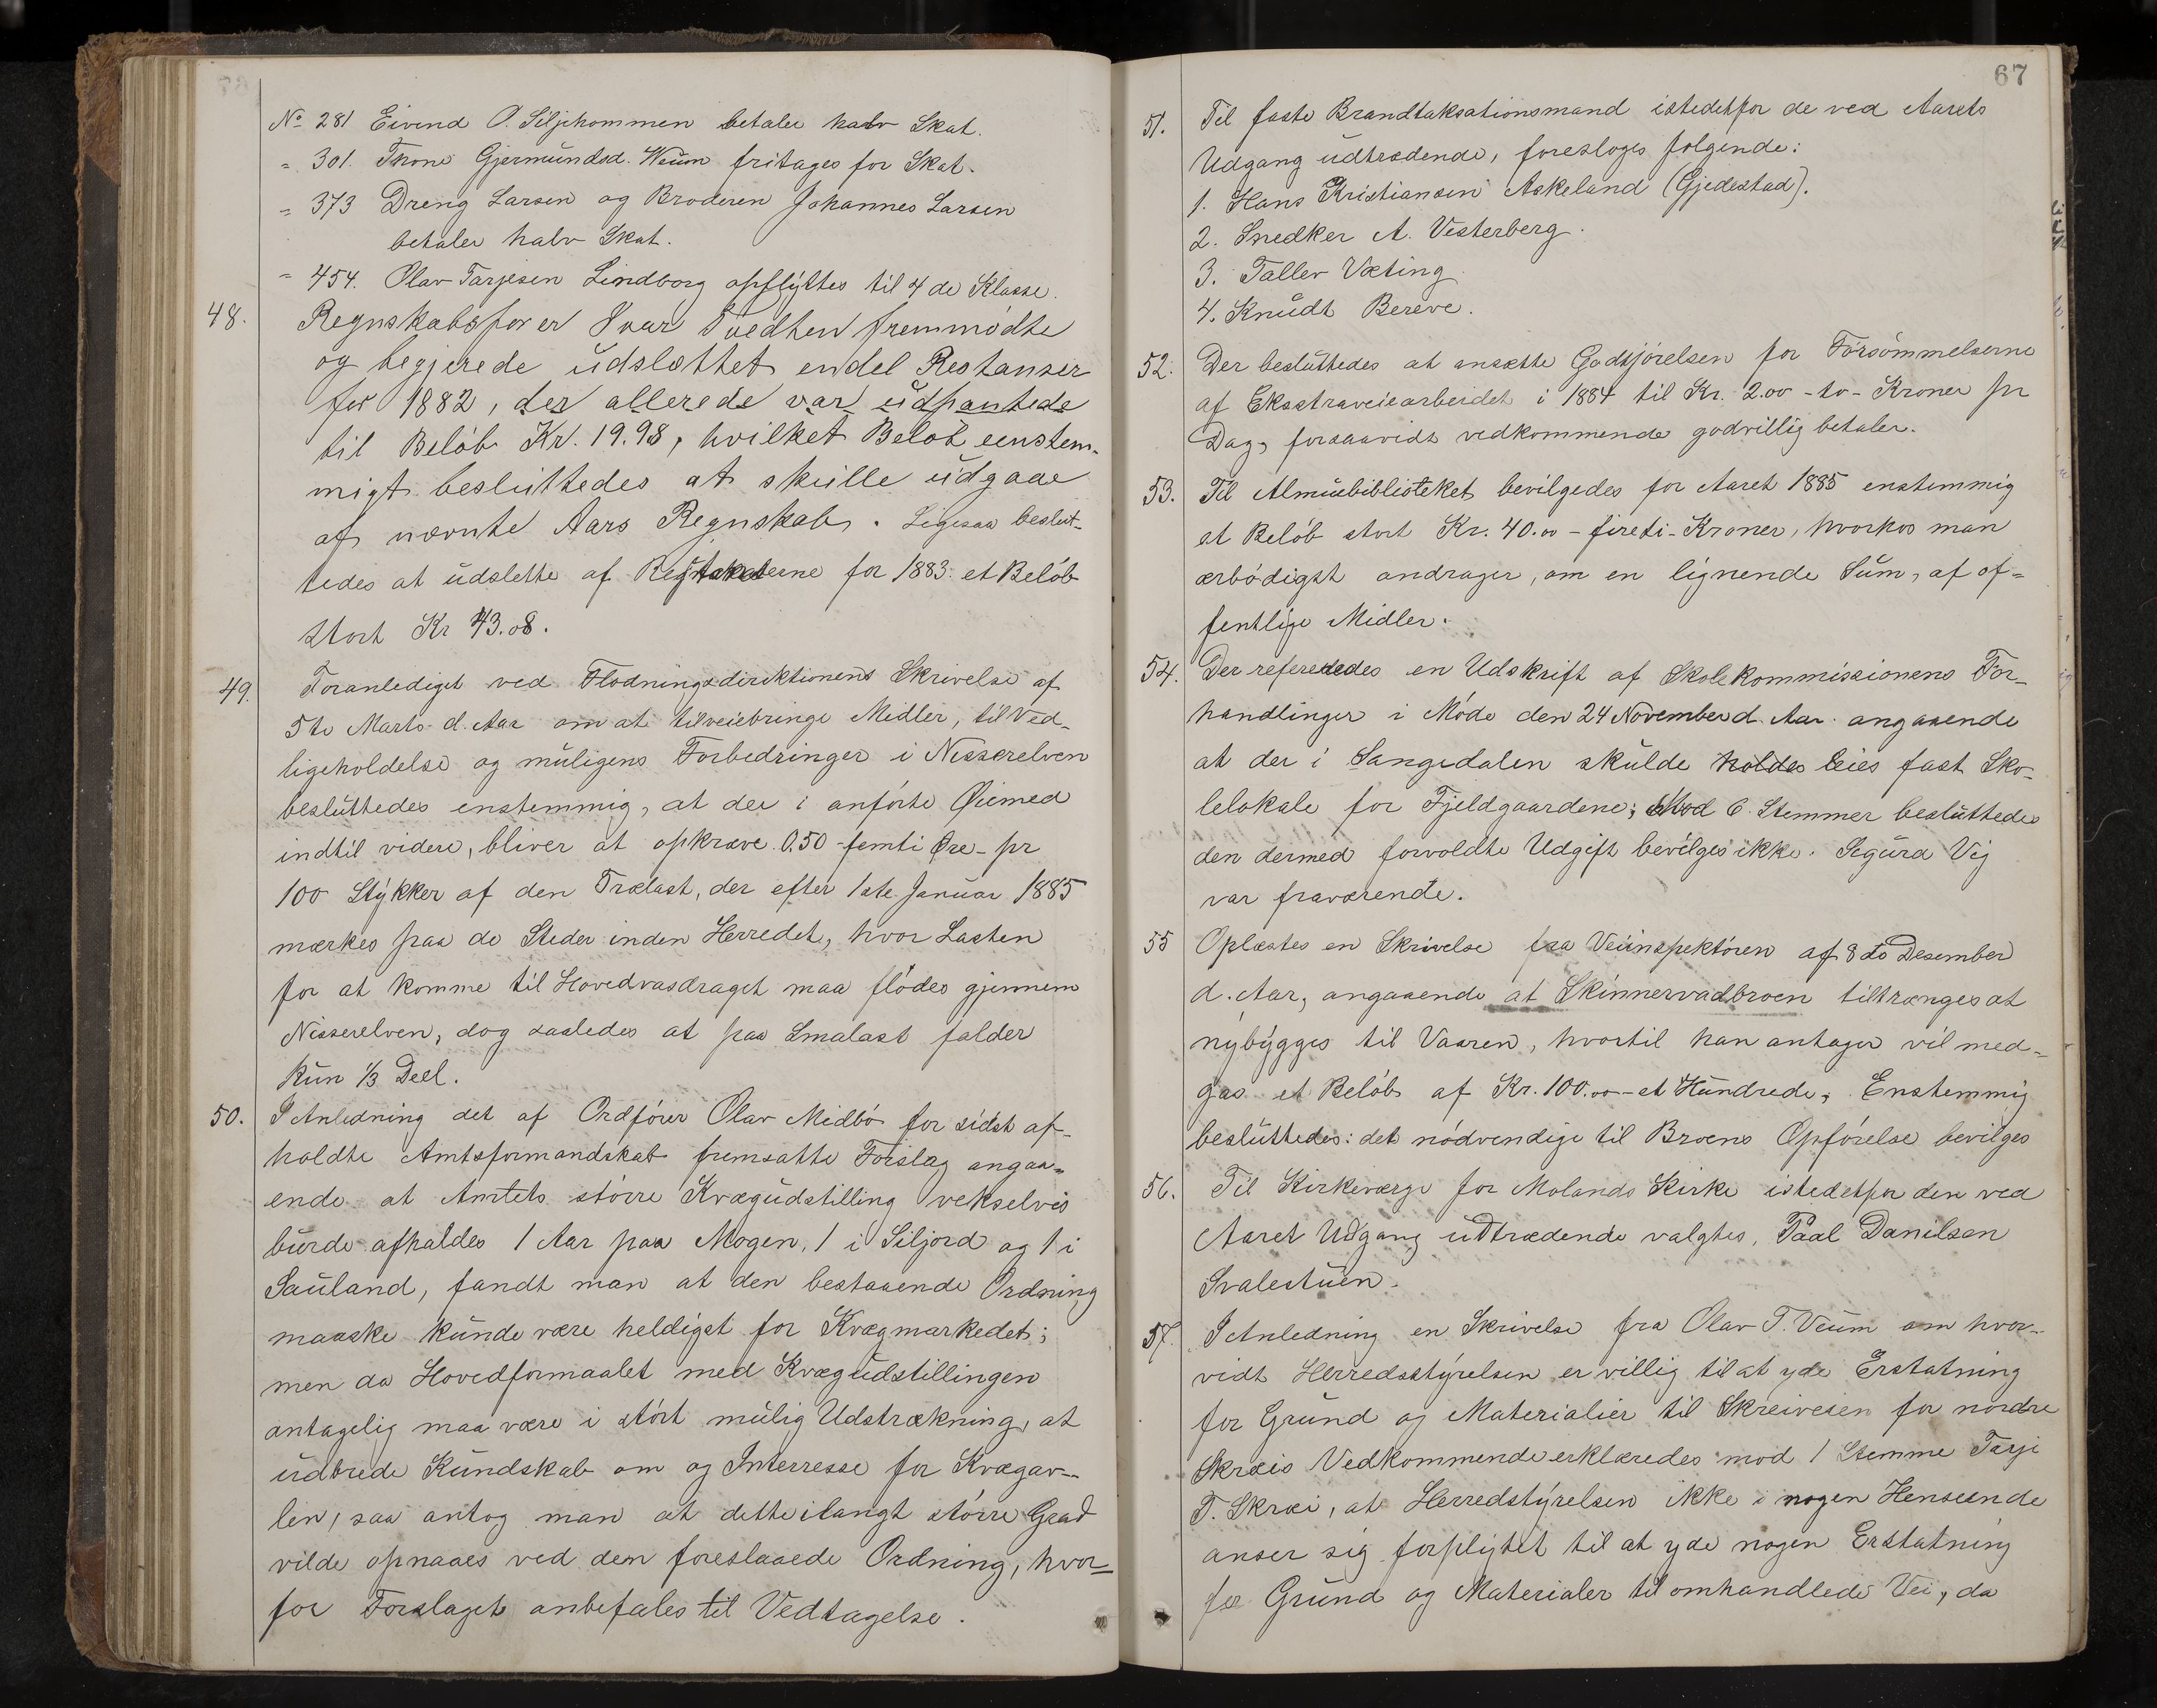 No 281 Eivend O. Siljehommen betaler halv Skat.
" 301. Thone Gjermundsd. Weum fritages for Skat.
" 373 Dreng Larsen og Broderen Johannes Larsen
betaler halv Skat.
" 454. Olav Tarjesen Lindborg opflyttes til 4de Klasse.
48. Regnskabsfører Ivar Tvedten fremmødte
og begjerede udslettet endel Restanser
for 1882, der allerede var udpantede
til Beløb Kr. 19.98, hvilket Beløb eenstem-
migt besluttedes at skulle udgaae
af nævnte Aars Regnskab. Ligesaa beslut-
tedes at udslette af Regnskaberne for 1883 et Beløb
stort Kr 43.08.
49. Foranlediget ved Flødningsdirektionens Skrivelse af
5te Marts d. Aar om at tilveiebringe Midler, til Ved-
ligeholdelse og muligens Forbedringer i Nisserelven
besluttedes enstemmig, at der i anførte Øiemed
indtil videre, bliver at opkræve 0.50 - femti Øre - pr
100 Stykker af den Trælast, der efter 1ste Januar 1885
mærkes paa de Steder inden Herredet, hvor Lasten
for at komme til Hovedvasdraget maa flødes gjennem
Nisserelven, dog saaledes at paa Smalast falder
kun 1/3 Deel.
50. I Anledning det af Ordfører Olav Midbø for sidst af-
holdte Amtsformandskab fremsatte Forslag angaa-
ende at Amtets større Kvægudstilling vekselvis
burde afholdes 1 Aar paa Mogen, 1 i Siljord og 1 i
Sauland, fandt man at den bestaaende Ordning
maaske kunde være heldigst for Kvægmarkedet;
men da Hovedformaalet med Kvægudstillingen
antagelig maa være i størt mulig Udstrækning, at
udbrede Kundskab om og Interresse for Kvægav-
len, saa antog man at dette i langt større Grad
vilde opnaaes ved den foreslaaede Ordning, hvor-
for Forslaget anbefales til Vedtagelse.
67
51. Til faste Brandtaksationsmænd istedetfor de ved Aarets
Udgang udtrædende, foresloges følgende:
1. Hans Kristiansen Askeland (Gjedestad).
2. Snedker A. Vesterberg.
3. Tallev Væting
4. Knudt Bereve.
52. Der besluttedes at ansætte Godtjørelsen for Forsømmelserne
af Eksstraveiearbeidet i 1884 til Kr. 2.00 - to - Kroner pr
Dag, forsaavidt vedkommende godvillig betaler.
53. Til Almuebiblioteket bevilgedes for Aaret 1885 enstemmig
et Beløb stort Kr. 40.00 - fireti - Kroner, hvorhos man
ærbødigst andrager, om en lignende Sum, af of-
fentlige Midler.
54. Der refereredes en Udskrift af Skolekommissionens For-
handlinger i Møde den 24 November d. Aar angaaende
at der i Sangedalen skulde holdes leies fast Sko-
lelokale for Fjeldgaardene; Mod 6 Stemmer besluttedes
den dermed forvoldte Udgift bevilges ikke. Segurd Vij
var fraværende.
55 Oplæstes en Skrivelse fra Veiinspektøren af 8de Desember
d. Aar, angaaende at Skinnervadbroen tiltrænges at
nybygges til Vaaren, hvortil han antager vil med-
gaa et Beløb af Kr. 100.00 - et Hundrede, Enstemmig
besluttedes: det nødvendige til Broens Opførelse bevilges
56. Til Kirkeværge for Molands Kirke istedetfor den ved
Aaret Udgang udtrædende valgtes, Paal Danilsen
Svalestuen.
57. I Anledning en Skrivelse fra Olav T. Veum om hvor-
vidt Herredsstyrelsen er villig til at yde Erstatning
for Grund og Materialier til Skreiveien for nordre
Skræis Vedkommende erklæredes mod 1 Stemme Tarje
T. Skræi, at Herredstyrelsen ikke i nogen Henseende
anser sig forpligtet til at yde nogen Erstatning
for Grund og Materialer til omhandlede Vei, da